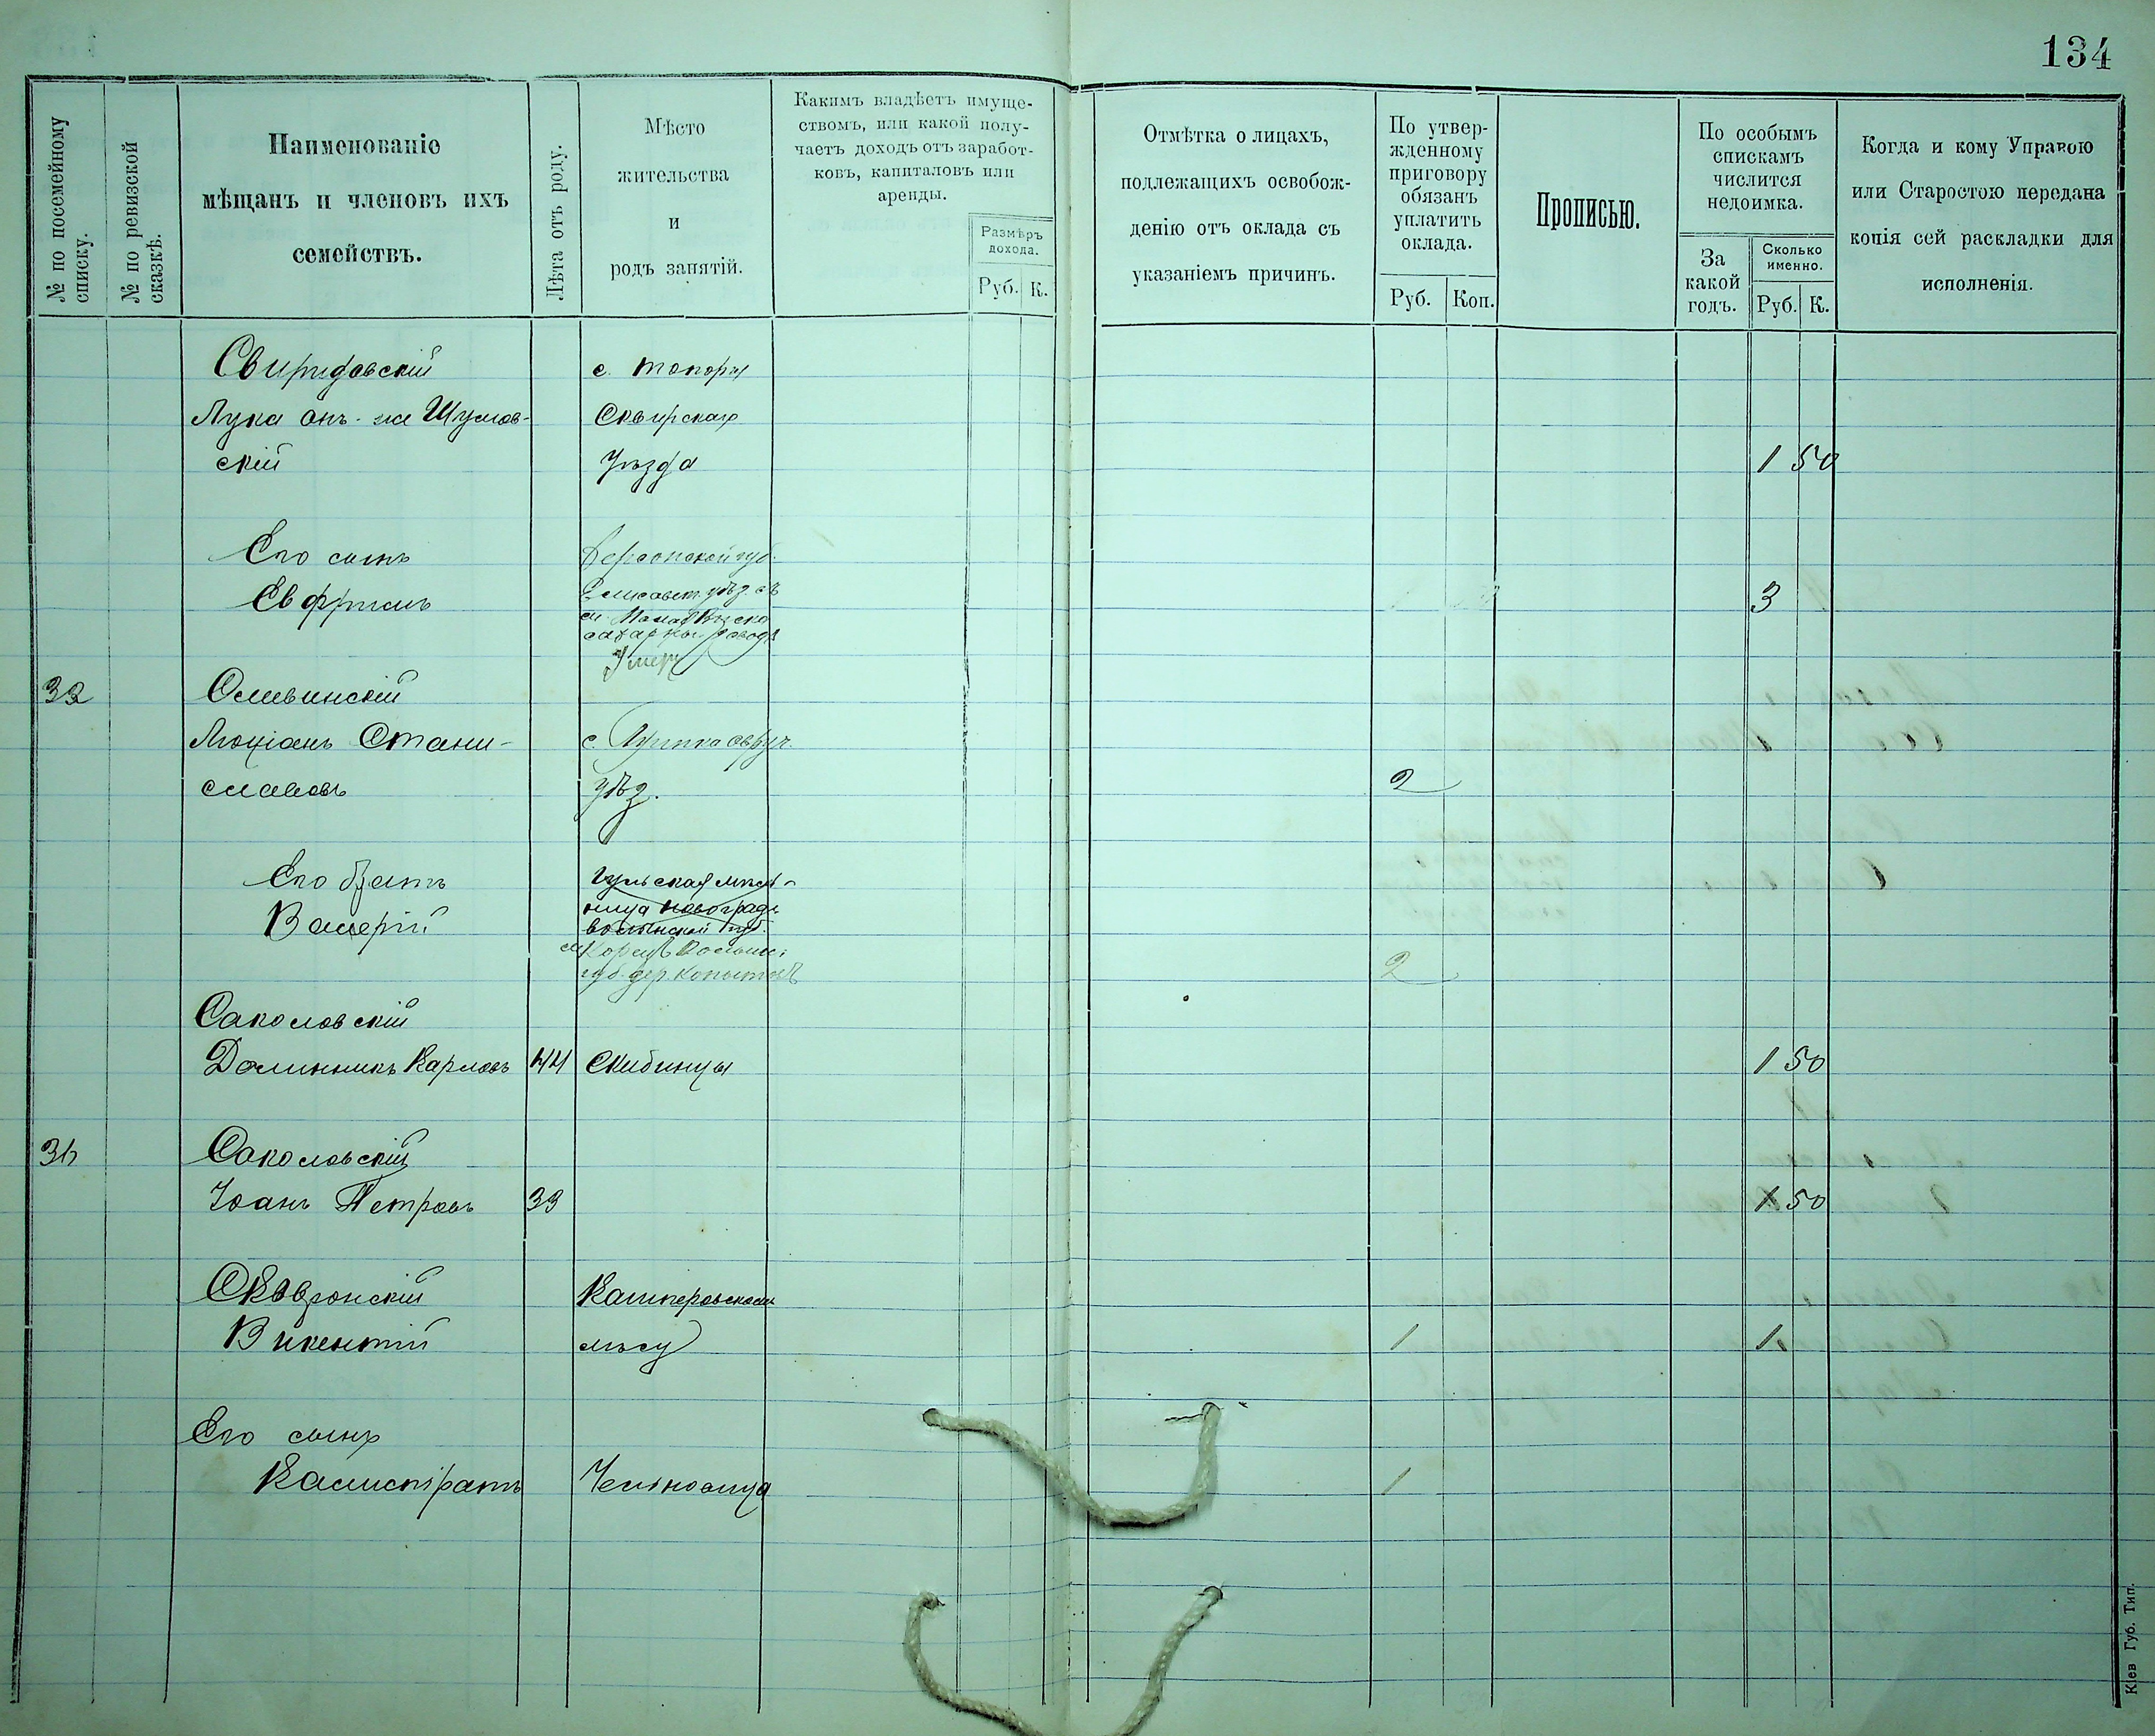 134
№ по посемейному списку.
№ по ревизской сказкѣ.
Наименованіе
мѣщанъ и членовъ ихъ
семействъ.
Лѣта отъ роду.
Мѣсто
жительства
и
родъ занятій.
Какимъ владѣетъ имуще-
ствомъ, или какой полу-
чаетъ доходъ отъ заработ-
ковъ, капиталовъ или
аренды.
Размѣръ
дохода.
Руб. К.
Отмѣтка о лицахъ,
подлежащихъ освобож-
денію отъ оклада съ
указаніемъ причинъ.
По утвер-
жденному
приговору
обязанъ
уплатить
оклада.
Руб. Коп.
Прописью.
По особымъ
спискамъ
числится
недоимка.
За
какой
годъ.
Сколько
именно.
Руб. К.
Когда и кому Управою
или Старостою передана
копія сей раскладки для
исполненія.
Свиридовскій с. Топоры
Лука онъ-же Шумов- Сквирскаго
скій Уѣзда 1 50
Его сынъ Херсонской губ.
Евфримъ Елисавет. уѣзд. съ 3
сахарный заводъ
Умеръ
32 Оливинскій
Люціанъ Стани- с.
славовъ уѣз. 2
Его братъ Гульская мель-
Валерій ница Новоградъ
волынской губ.
м. Корецъ Волын.
губ. дер. Копытовъ 2
Саколовскій
Доминникъ Карловъ 44 Скибинцы 1 50
Саколовскій
Іоанъ Петровъ 33 1 50
Сквронскій Кашперовскомъ
Викентій лѣсу 1 1
Его сынъ
Калистратъ 1
Кіев Губ. Тип.